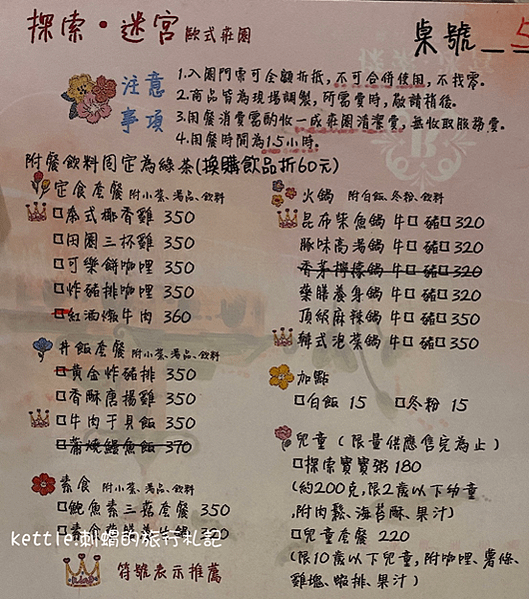 探索·迷宮 歐式莊園
桌號_5
注意事項
1.入園門票可全額折抵,不可合併使用,不找零。
2.商品皆為現場調製,所需費時,敬請稍後。
3.用餐消費需酌收一成莊園清潔費,無收取服務費。
4.用餐時間為1.5小時。
附餐飲料固定為綠茶(換購飲品折60元)
定食套餐 附小菜、湯品、飲料
□泰式椰香雞 350
□田園三杯雞 350
□可樂餅咖哩 350
□炸豬排咖哩 350
□紅酒燉牛肉 360
丼飯套餐 附小菜、湯品、飲料
□黃金炸豬排 350
□香酥唐揚雞 350
□牛肉干貝飯 350
□蒲燒鰻魚飯 370
素食 附小菜、湯品、飲料
□鮑魚素三菇套餐 350
350
符號表示推薦
火鍋 附白飯、冬粉、飲料
昆布柴魚鍋 牛□ 豬□ 320
豚味高湯鍋 牛□ 豬□ 320
香茅檸檬鍋 牛□ 豬□ 320
藥膳養身鍋 牛□ 豬□ 320
頂級麻辣鍋 牛□ 豬□ 350
韓式泡菜鍋 牛□ 豬□ 350
加點
□白飯 15 □冬粉 15
兒童(限量供應售完為止)
□探索寶寶粥 180
(約200克,限2歲以下幼童
,附肉鬆、海苔酥、果汁)
□兒童套餐 220
(限10歲以下兒童,附咖哩、薯條、
雞塊、蝦排、果汁)
kettle.刺蝟的旅行札記